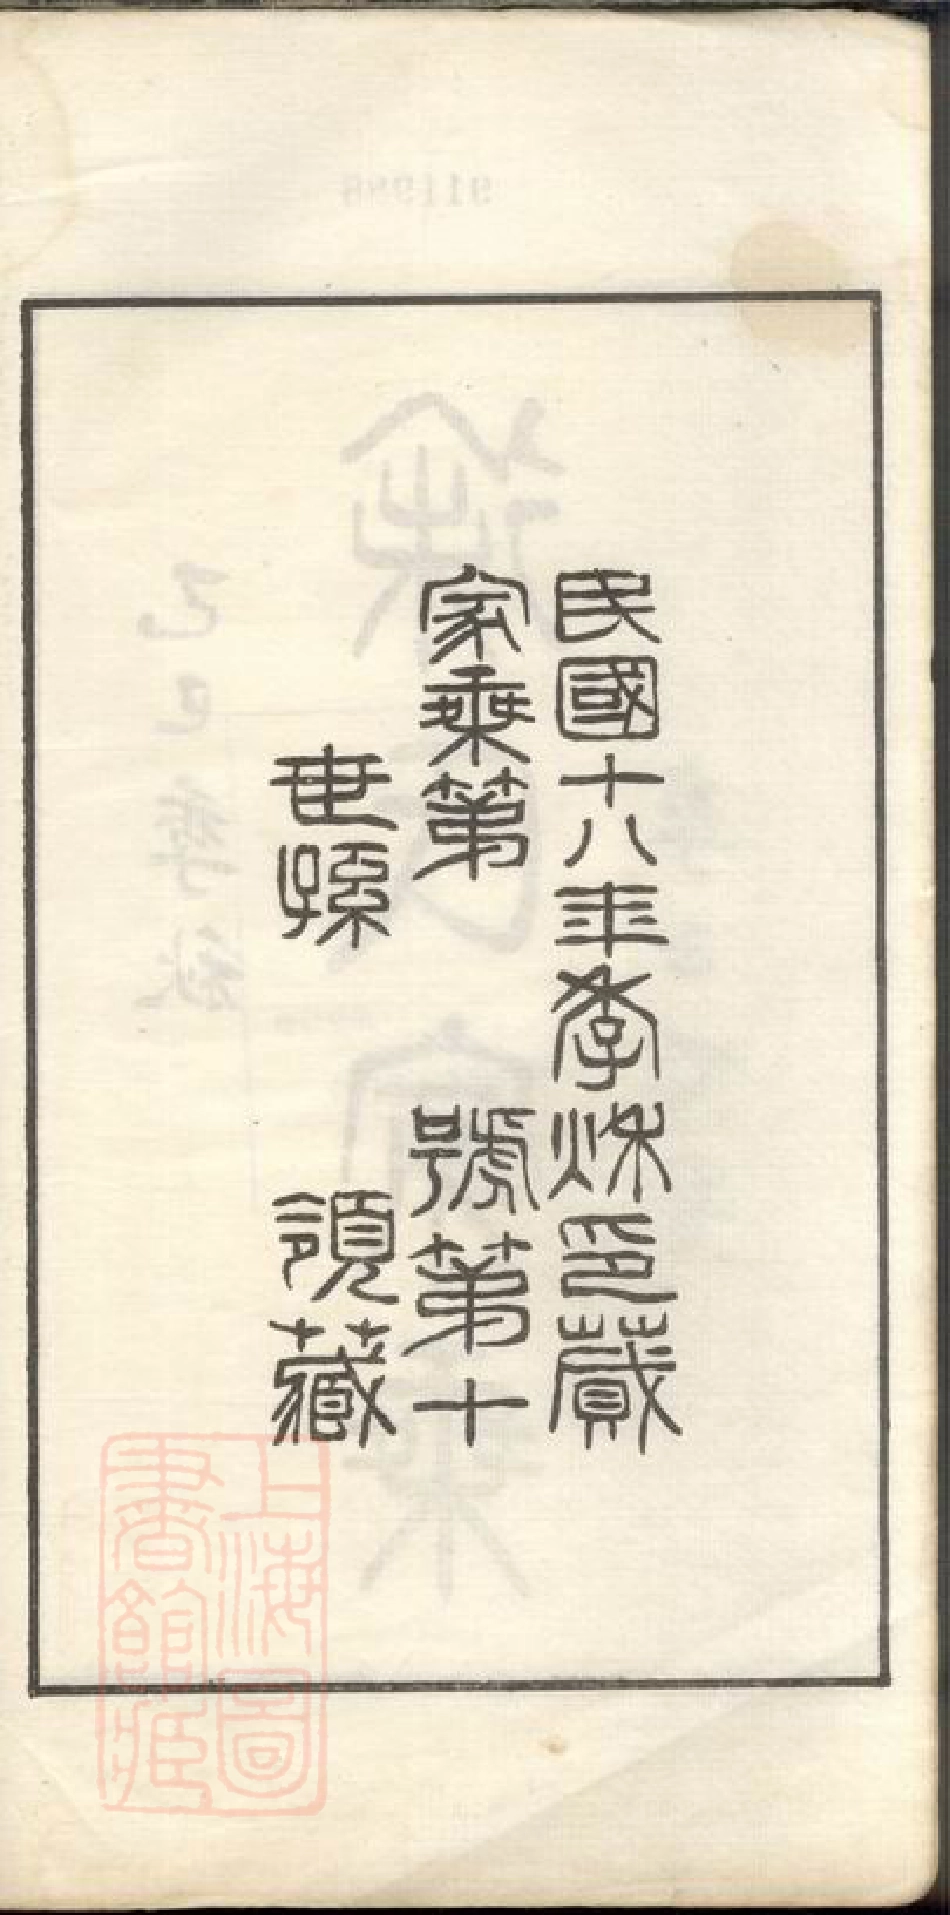 民國十八年季秌印蕆
家乘第　號第十
世孫　領藏
上海圖
書館藏